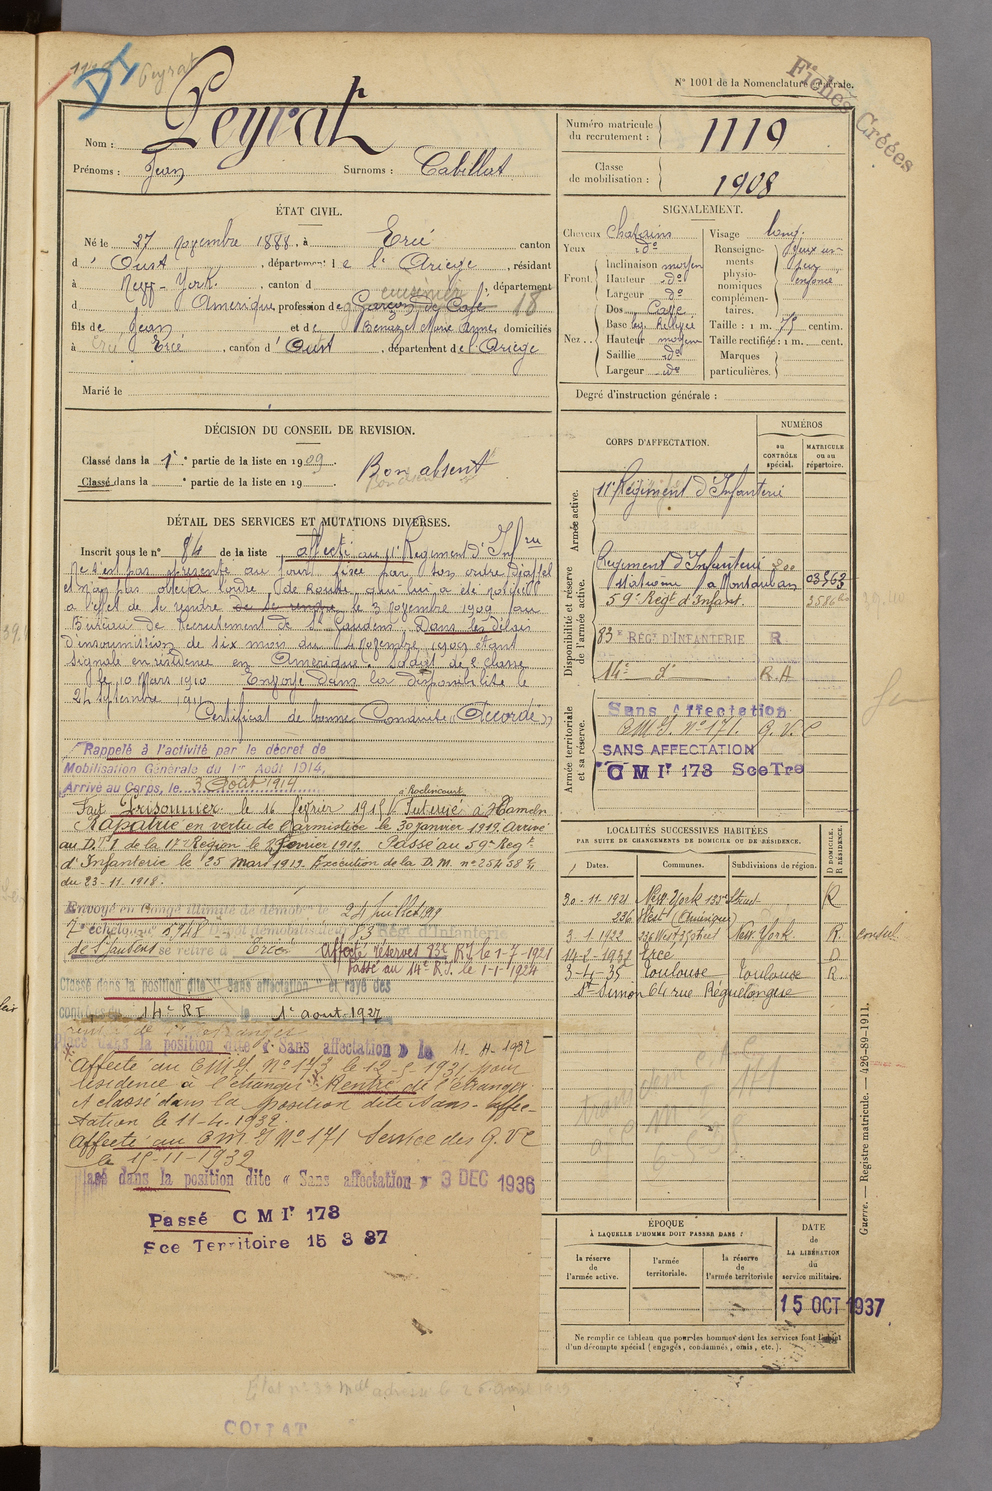 DI Peyrat
Fiches Créées
N° 1001 de la Nomenclature Générale.
Nom : Peyrat
Prénoms : Jean Surnoms : Cabillat
Numéro matricule du recrutement : 1119
Classe de mobilisation : 1908
ÉTAT CIVIL.
Né le 27 novembre 1888, à Ercé canton
d' Oust, département de l'Ariège, résidant
à New-York, canton d , département
d Amérique, profession de Garçon de Café cuisinier 18
fils de Jean et de Marie Anne domiciliés
à Ercé, canton d'Oust, département de l'Ariège
Marié le
SIGNALEMENT.
Cheveux Chatains
Yeux d°
Front
Inclinaison moyen
Hauteur d°
Largeur d°
Nez
Dos
Base
Hauteur moyen
Saillie d°
Largeur d°
Visage long
Renseignements physionomiques complémentaires.
Yeux un peu enfoncé
Taille : 1 m. 75 centim.
Taille rectifiée : 1 m. cent.
Marques particulières.
Degré d'instruction générale :
DÉCISION DU CONSEIL DE REVISION.
Classé dans la 1e partie de la liste en 1909.
Classé dans la e partie de la liste en 19
Bon absent
DÉTAIL DES SERVICES ET MUTATIONS DIVERSES.
Inscrit sous le n° 84 de la liste affecté au 11e Régiment d'Infrie
ne s'est pas présenté au jour fixé par son ordre d'appel
et n'a pas obéi à l'ordre de Route qui lui a été notifié
à l'effet de se rendre de se rendre le 3 novembre 1909 au
Bureau de Recrutement de St Gaudens. Dans les délais
d'insoumission de six mois du 4 novembre 1909 étant
signalé en résidence en Amérique. Soldat de 2e classe
le 10 Mars 1910 Envoyé dans la disponibilité le
24 septembre 1911
Certificat de bonne Conduite "Accordé"
Rappelé à l'activité par le décret de
Mobilisation Générale du 1er Août 1914,
Arrivé au Corps, le 3 Août 1914
à Roclincourt
Fait Prisonnier le 16 février 1915 Interné à Hameln
Rapatrié en vertu de l'armistice le 30 janvier 1919. Arrivé
au D. de la 17e Région le 2 février 1919. Passé au 59e Regt
d'Infanterie le 25 mars 1919. Exécution de la D. M. n° 25458
du 23-11-1918.
Envoyé en Congé illimité de démobon le 24 Juillet 1919
7e échelon n° 5948 Dépôt démobilisateur 83 Régt d'Infanterie
de St Gaudens se retire à Ercé
Affecté réserves 83e R.I. le 1-7-1921
Passé au 14e R.I. le 1-1-1924
Classé dans la position dite "Sans affectation" et rayé des
contrôles 14e RI le 1er aout 1927
rentré de l'étranger
Placé dans la position dite « Sans affectation » le 11-4-1932
Affecté au CMI N° 173 le 12-5-1931 pour
résidence à l'étranger. Rentré de l'étranger
et classé dans la position dite sans-affec-
tation le 11-4-1932.
Affecté au C.M.I N° 171 Service des G.V.C
le 15-11-1932
lassé dans la position dite « Sans affectation » 3 DEC 1936
Passé C M Ir 173
Sce Territoire 15 3 37
CORPS D'AFFECTATION.
NUMÉROS
au CONTRÔLE spécial.
MATRICULE ou au répertoire.
Armée active.
11e Régiment d'Infanterie
Disponibilité et réserve de l'armée active.
Régiment d'Infanterie 200
stationné à Montauban
59e Regt d'Infant.
83e RÉGt D'INFANTERIE R
14e d° R.A
Armée territoriale et sa réserve.
Sans Affectation
CMI. N° 171. G.V.C
SANS AFFECTATION
C M Ir 173 Sce Tre
LOCALITÉS SUCCESSIVES HABITÉES
PAR SUITE DE CHANGEMENTS DE DOMICILE OU DE RÉSIDENCE.
Dates. Communes. Subdivisions de région. D DOMICILE. R RÉSIDENCE.
30-11-1921 New York 135e Street R
236 West (Amérique)
3-1-1922 236 West 35 Street New York R Consul
14-2-1932 Ercé D
3-4-35 Toulouse Toulouse R
St Simon 64 rue Réguelongue
ÉPOQUE
À LAQUELLE L'HOMME DOIT PASSER DANS :
la réserve de l'armée active.
l'armée territoriale.
la réserve de l'armée territoriale
DATE de LA LIBÉRATION du service militaire.
15 OCT 1937
Ne remplir ce tableau que pour les hommes dont les services font l'objet
d'un décompte spécial (engagés, condamnés, omis, etc.).
Guerre. — Registre matricule. — 426-89-1911.